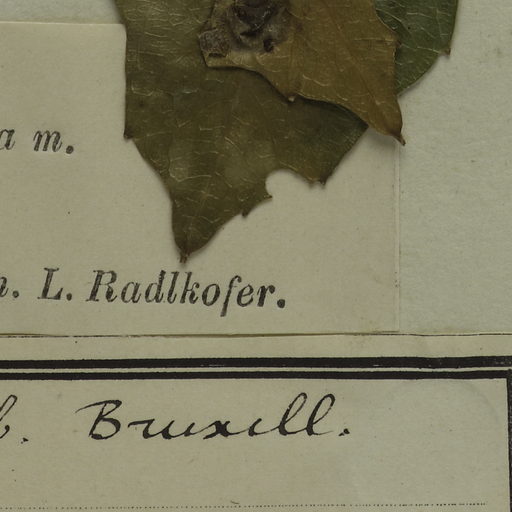 a m.
n. L. Radlkofer.
b. Bruxell.